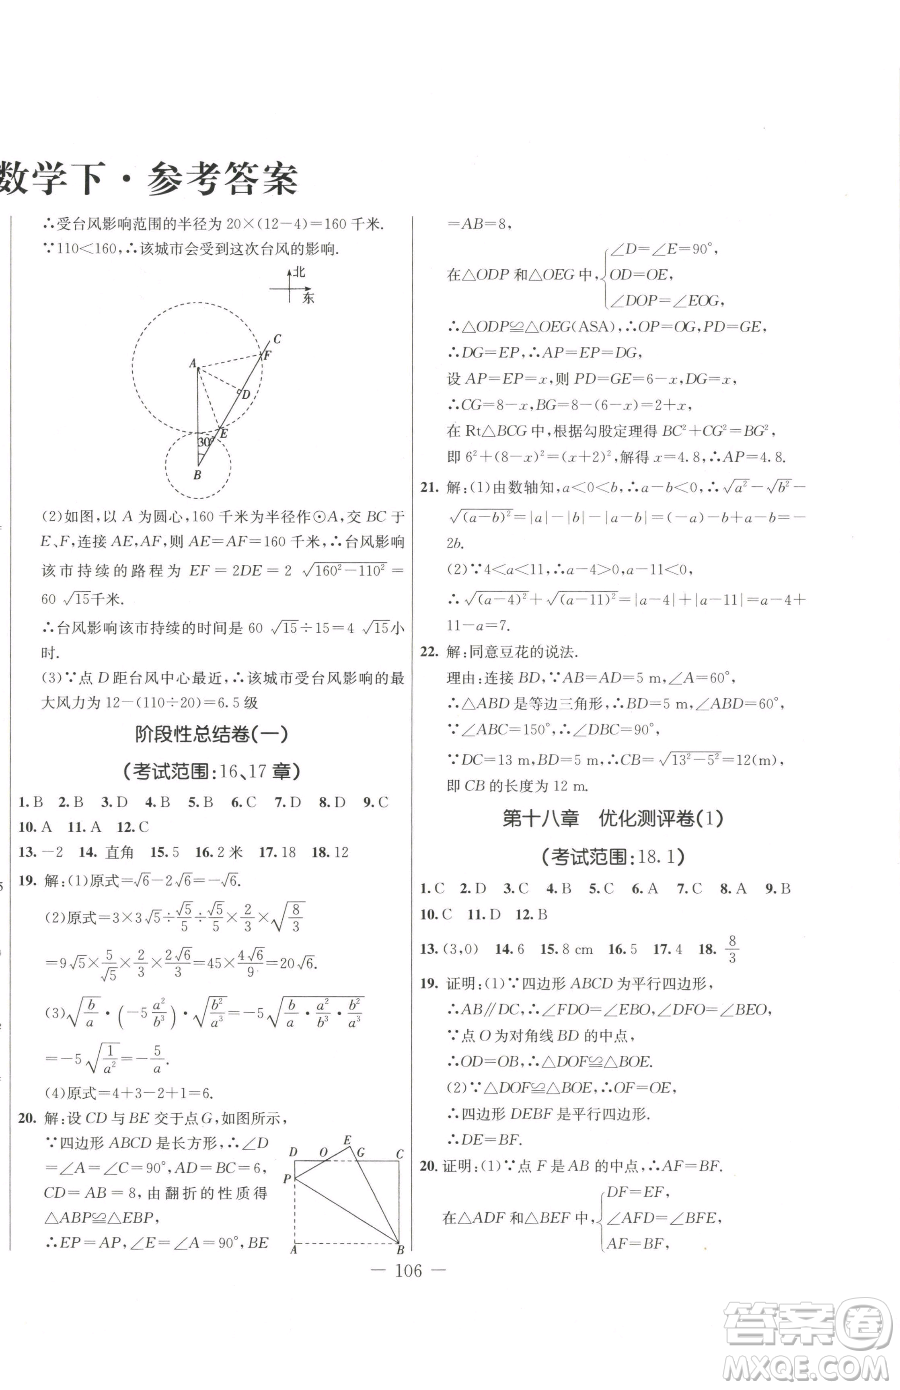 数学下·参考答案
∴受台风影响范围的半径为20×(12－4)＝160千米.
∵110＜160,∴该城市会受到这次台风的影响.
北
东
C
F
A
D
E
30°
B
(2)如图,以A为圆心,160千米为半径作⊙A,交BC于
E、F,连接AE,AF,则AE＝AF＝160千米,∴台风影响
该市持续的路程为EF＝2DE＝2√(160²－110²)＝
60√15千米.
∴台风影响该市持续的时间是60√15÷15＝4√15小
时.
(3)∵点D距台风中心最近,∴该城市受台风影响的最
大风力为12－(110÷20)＝6.5级
阶段性总结卷(一)
(考试范围:16、17章)
1.B 2.B 3.D 4.B 5.B 6.C 7.B 8.D 9.C
10.A 11.A 12.C
13.－2 14.直角 15.5 16.2米 17.18 18.12
19.解:(1)原式＝√6－2√6＝－√6.
(2)原式＝3×3√5÷√5/5÷√5/5×2/3×√(8/3)
＝9√5×5/√5×2/3×2√6/3＝45×4√6/9＝20√6.
(3)√(b/a)·(－5√(a²/b³))＝－5√(b/a·a²/b³·b²/a³)
＝－5√(1/a²)＝－5/a.
(4)原式＝4＋3－2＋1＝6.
20.解:设CD与BE交于点G,如图所示,
∵四边形ABCD是长方形,∴∠D
＝∠A＝∠C＝90°,AD＝BC＝6,
CD＝AB＝8,由翻折的性质得
△ABP≌△EBP,
∴EP＝AP,∠E＝∠A＝90°,BE
D O E G C
P
A B
＝AB＝8,
在△ODP和△OEG中,{∠D＝∠E＝90°,
OD＝OE,
∠DOP＝∠EOG,
∴△ODP≌△OEG(ASA),∴OP＝OG,PD＝GE,
∴DG＝EP,∴AP＝EP＝DG,
设AP＝EP＝x,则PD＝GE＝6－x,DG＝x,
∴CG＝8－x,BG＝8－(6－x)＝2＋x,
在Rt△BCG中,根据勾股定理得BC²＋CG²＝BG²,
即6²＋(8－x)²＝(x＋2)²,解得x＝4.8,∴AP＝4.8.
21.解:(1)由数轴知,a＜0＜b,∴a－b＜0,∴√a²－√b²－
√(a－b)²＝|a|－|b|－|a－b|＝(－a)－b＋a－b＝－
2b.
(2)∵4＜a＜11,∴a－4＞0,a－11＜0,
∴√(a－4)²＋√(a－11)²＝|a－4|＋|a－11|＝a－4＋
11－a＝7.
22.解:同意豆花的说法.
理由:连接BD,∵AB＝AD＝5 m,∠A＝60°,
∴△ABD是等边三角形,∴BD＝5 m,∠ABD＝60°,
∵∠ABC＝150°,∴∠DBC＝90°,
∵DC＝13 m,BD＝5 m,∴CB＝√(13²－5²)＝12(m),
即CB的长度为12 m.
第十八章 优化测评卷(1)
(考试范围:18.1)
1.C 2.C 3.D 4.C 5.D 6.C 7.A 8.A 9.B
10.C 11.D 12.B
13.(3,0) 14.6 15.8 cm 16.5 17.4 18.8/3
19.证明:(1)∵四边形ABCD为平行四边形,
∴AB∥DC,∴∠FDO＝∠EBO,∠DFO＝∠BEO,
∵点O为对角线BD的中点,
∴OD＝OB,∴△DOF≌△BOE.
(2)∵△DOF≌△BOE,∴OF＝OE,
∴四边形DEBF是平行四边形.
∴DE＝BF.
20.证明:(1)∵点F是AB的中点,∴AF＝BF.
在△ADF和△BEF中,{DF＝EF,
∠AFD＝∠BFE,
AF＝BF,
— 106 —
答案圈
MXQE.COM